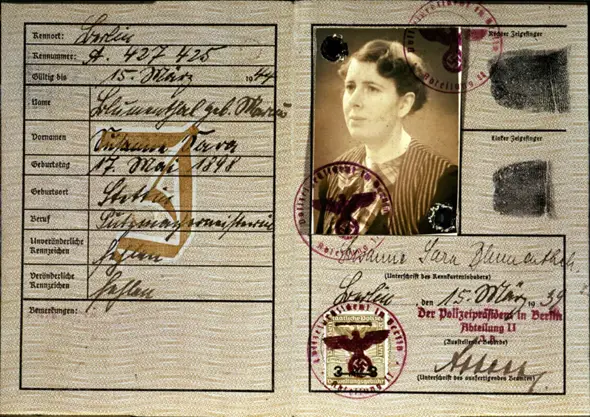 Kennort: Berlin
Kennummer: A. 427 425
Gültig bis 15. März 1944
Name Blumenthal geb.
Vornamen Susanne Sara
Geburtstag 17. Mai 1898
Geburtsort Stettin
Beruf Putzmachermeisterin
Unveränderliche Kennzeichen fehlen
Veränderliche Kennzeichen fehlen
Bemerkungen:
J
Rechter Zeigefinger
Linker Zeigefinger
Polizeipräsident in Berlin
Abteilung II
Polizeipräsident in Berlin
Abteilung II
Susanne Sara Blumenthal
(Unterschrift des Kennkarteninhabers)
Berlin, den 15. März 1939
Der Polizeipräsident in Berlin
Abteilung II
(Ausstellende Behörde)
(Unterschrift des ausfertigenden Beamten)
Polizeipräsident in Berlin
Abteilung II
3 3